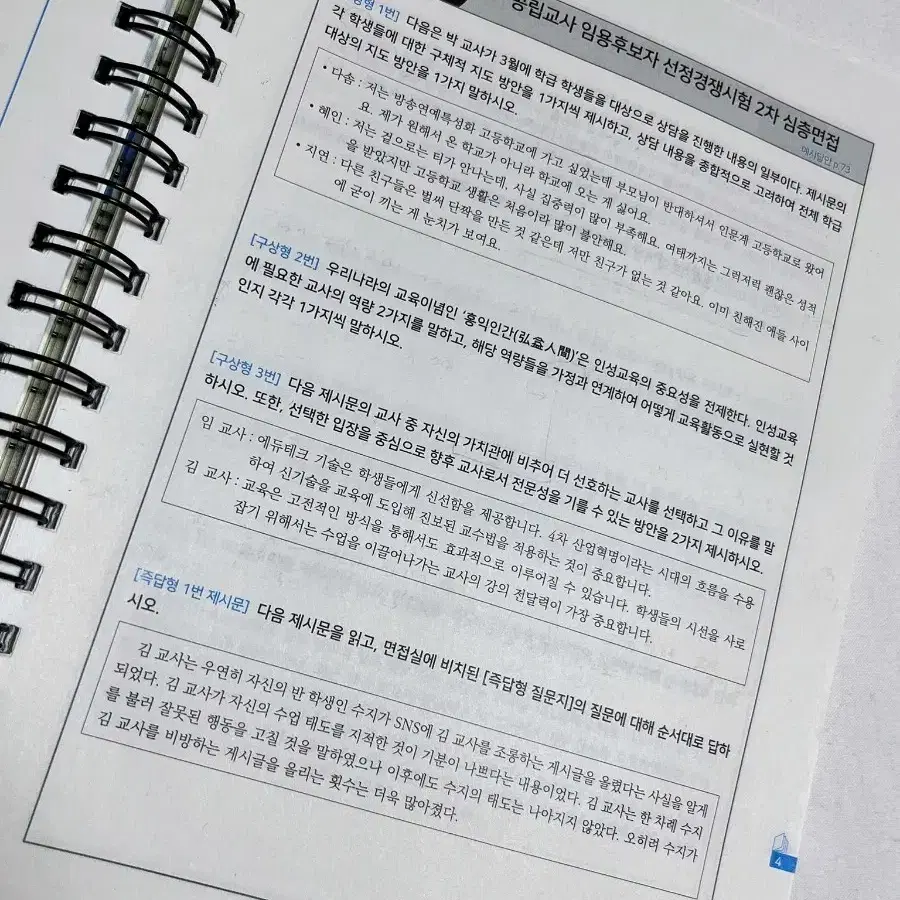 공립교사 임용후보자 선정경쟁시험 2차 심층면접
예시답안 p.73
1번] 다음은 박 교사가 3월에 학급 학생들을 대상으로 상담을 진행한 내용의 일부이다. 제시문의
각 학생들에 대한 구체적 지도 방안을 1가지씩 제시하고, 상담 내용을 종합적으로 고려하여 전체 학급
대상의 지도 방안을 1가지 말하시오.
• 다솜 : 저는 방송연예특성화 고등학교에 가고 싶었는데 부모님이 반대하셔서 인문계 고등학교로 왔어
요. 제가 원해서 온 학교가 아니라 학교에 오는 게 싫어요.
• 혜인 : 저는 겉으로는 티가 안나는데, 사실 집중력이 많이 부족해요. 여태까지는 그럭저럭 괜찮은 성적
을 받았지만 고등학교 생활은 처음이라 많이 불안해요.
• 지연 : 다른 친구들은 벌써 단짝을 만든 것 같은데 저만 친구가 없는 것 같아요. 이미 친해진 애들 사이
에 굳이 끼는 게 눈치가 보여요.
[구상형 2번] 우리나라의 교육이념인 '홍익인간(弘益人間)'은 인성교육의 중요성을 전제한다. 인성교육
에 필요한 교사의 역량 2가지를 말하고, 해당 역량들을 가정과 연계하여 어떻게 교육활동으로 실현할 것
인지 각각 1가지씩 말하시오.
[구상형 3번] 다음 제시문의 교사 중 자신의 가치관에 비추어 더 선호하는 교사를 선택하고 그 이유를 말
하시오. 또한, 선택한 입장을 중심으로 향후 교사로서 전문성을 기를 수 있는 방안을 2가지 제시하시오.
임 교사 : 에듀테크 기술은 학생들에게 신선함을 제공합니다. 4차 산업혁명이라는 시대의 흐름을 수용
하여 신기술을 교육에 도입해 진보된 교수법을 적용하는 것이 중요합니다.
김 교사 : 교육은 고전적인 방식을 통해서도 효과적으로 이루어질 수 있습니다. 학생들의 시선을 사로
잡기 위해서는 수업을 이끌어나가는 교사의 강의 전달력이 가장 중요합니다.
[즉답형 1번 제시문] 다음 제시문을 읽고, 면접실에 비치된 [즉답형 질문지]의 질문에 대해 순서대로 답하
시오.
김 교사는 우연히 자신의 반 학생인 수지가 SNS에 김 교사를 조롱하는 게시글을 올렸다는 사실을 알게
되었다. 김 교사가 자신의 수업 태도를 지적한 것이 기분이 나빴다는 내용이었다. 김 교사는 한 차례 수지
를 불러 잘못된 행동을 고칠 것을 말하였으나 이후에도 수지의 태도는 나아지지 않았다. 오히려 수지가
김 교사를 비방하는 게시글을 올리는 횟수는 더욱 많아졌다.
4